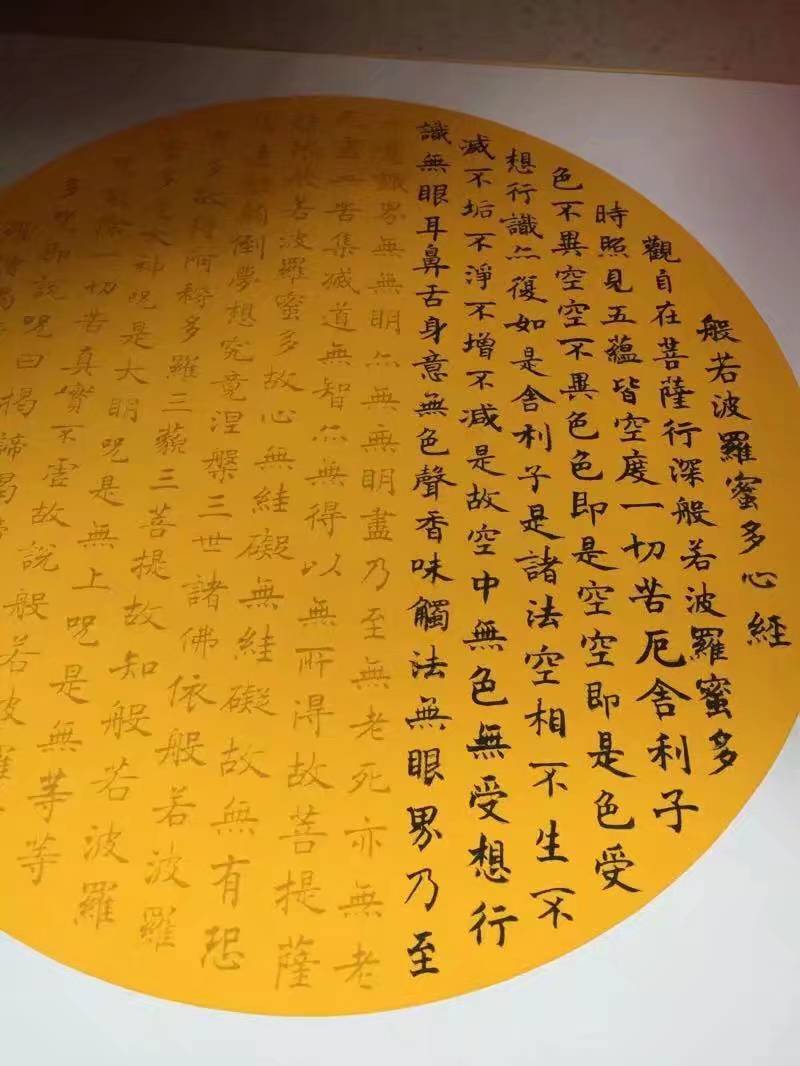 般若波羅蜜多心經
觀自在菩薩行深般若波羅蜜多
時照見五蘊皆空度一切苦厄舍利子
色不異空空不異色色即是空空即是色受
想行識亦復如是舍利子是諸法空相不生不
滅不垢不淨不增不減是故空中無色無受想行
識無眼耳鼻舌身意無色聲香味觸法無眼界乃至
識界無無明亦無無明盡乃至無老死亦無老
苦集滅道無智亦無得以無所得故菩提薩
若波羅蜜多故心無絓礙無絓礙故無有恐
倒夢想究竟涅槃三世諸佛依般若波羅
阿耨多羅三藐三菩提故知般若波羅
大神咒是大明咒是無上咒是無等等
一切苦真實不虛故說般若波羅
多咒即說咒曰揭諦揭